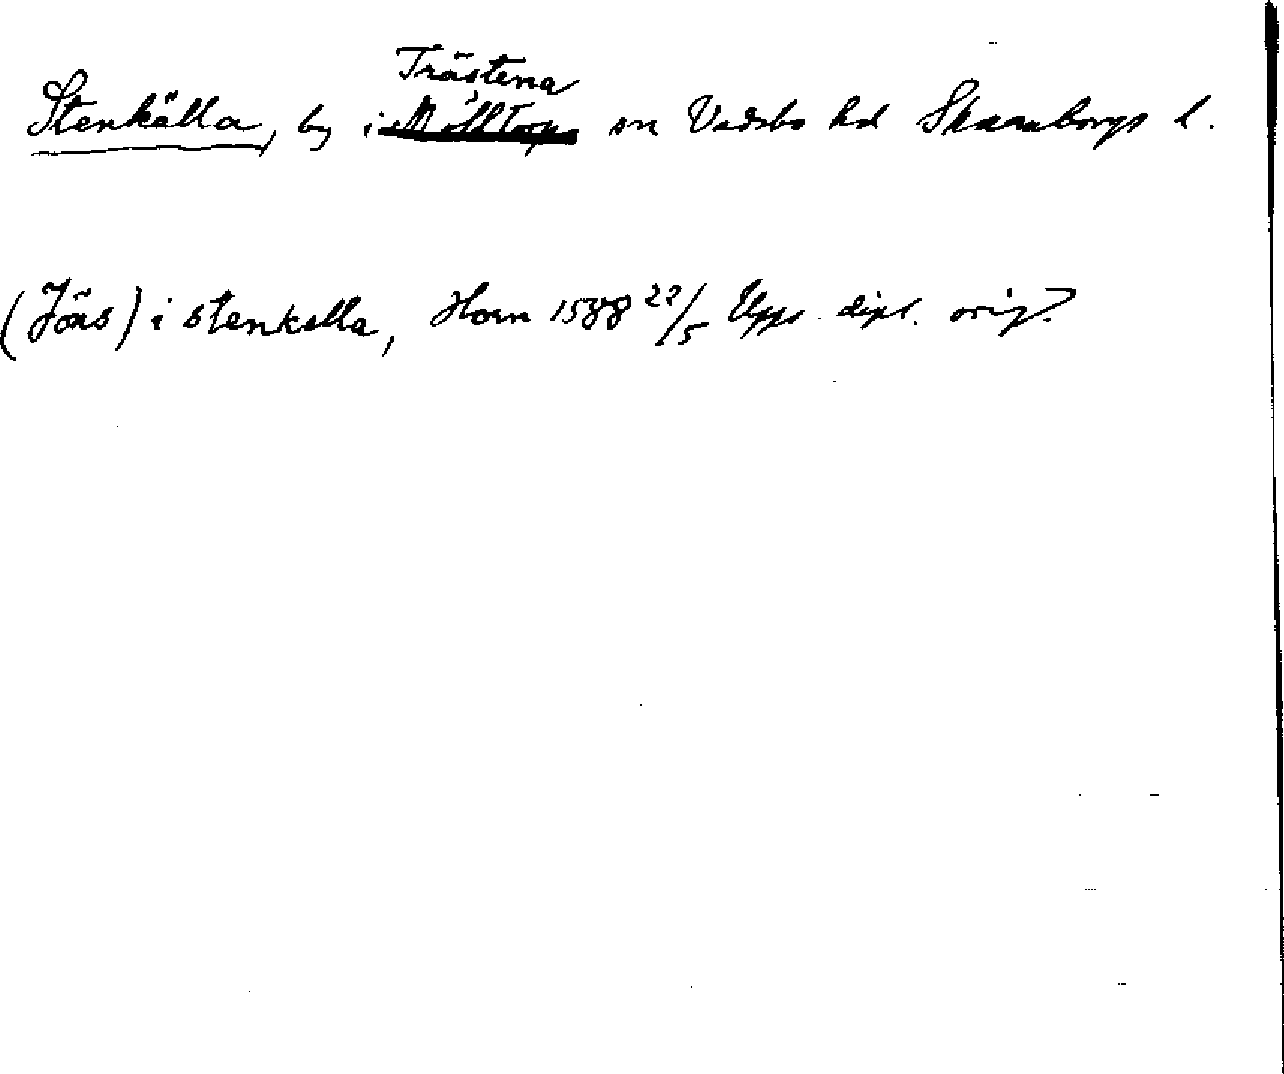 Trästena
Stenkälla, by i Mölltorps sn Vadsbo hd Skaraborgs l.
(Jöns) i stenkella, Horn 1588 22/5 Upps. dipl. orig.